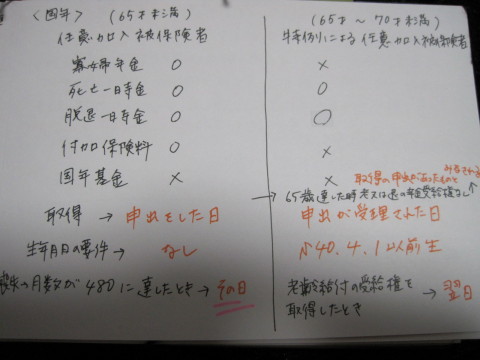 <国年> (65才未満)
任意加入被保険者
寡婦年金 ○
死亡一時金 ○
脱退一時金 ○
付加保険料 ○
国年基金 ×
取得 → 申出をした日
生年月日の要件 → なし
喪失→月数が480に達したとき → その日
(65才～70才未満)
特例による任意加入被保険者
×
○
○
×
× 取得の申出があったものと
みなされる
→65歳達した時老又は退の年金受給権なし↑
申出が受理された日
S40.4.1以前生
老齢給付の受給権を → 翌日
取得したとき